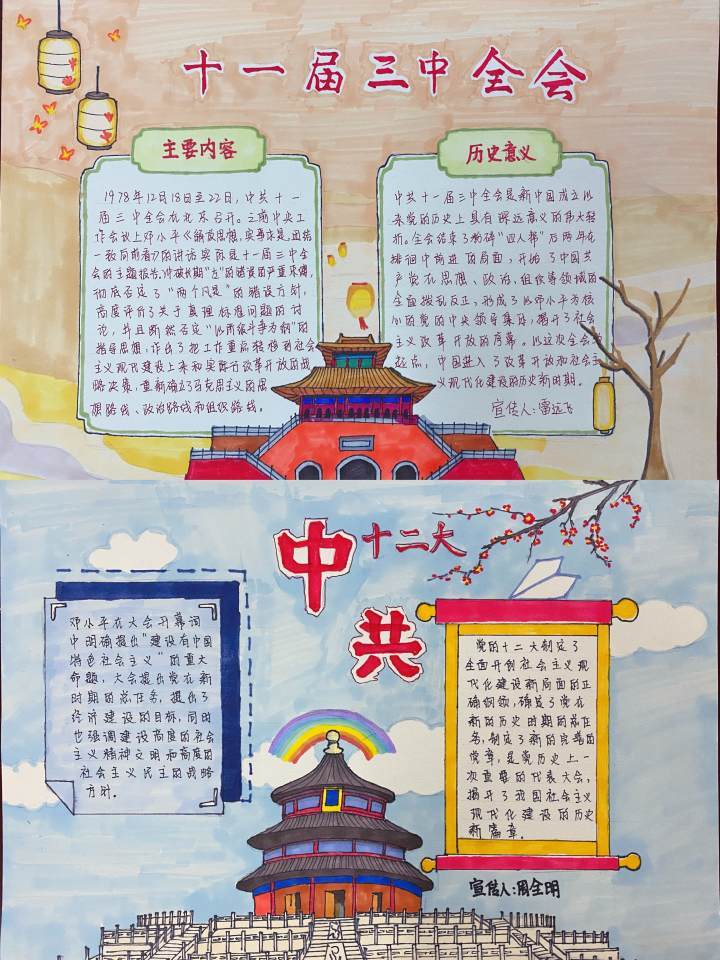 十一届三中全会
主要内容
1978年12月18日至22日，中共十一
届三中全会在北京召开。之前中央工
作会议上邓小平《解放思想，实事求是，团结
一致向前看》的讲话实际是十一届三中全
会的主题报告。冲破长期"左"的错误的严重束缚，
彻底否定了"两个凡是"的错误方针，
高度评价了关于真理标准问题的讨
论，并且断然否定"以阶级斗争为纲"的
指导思想，作出了把工作重点转移到社会
主义现代化建设上来和实行改革开放的战
略决策，重新确立了马克思主义的思
想路线、政治路线和组织路线。
历史意义
中共十一届三中全会是新中国成立以
来党的历史上具有深远意义的伟大转
折。全会结束了粉碎"四人帮"后两年在
徘徊中前进的局面，开始了中国共
产党在思想、政治、组织等领域的
全面拨乱反正，形成了以邓小平为核
心的党的中央领导集体，揭开了社会
主义改革开放的序幕。以这次全会为
起点，中国进入了改革开放和社会主
义现代化建设的历史新时期。
宣传人：雷远飞
中共
十二大
邓小平在大会开幕词
中明确提出"建设有中国
特色社会主义"的重大
命题，大会提出党在新
时期的总任务，提出了
经济建设的目标，同时
也强调建设高度的社会
主义精神文明和高度的
社会主义民主的战略
方针。
党的十二大制定了
全面开创社会主义现
代化建设新局面的正
确纲领，确定了党在
新的历史时期的总任
务，制定了新的完善的
党章，是党历史上一
次重要的代表大会，
揭开了我国社会主义
现代化建设的历史
新篇章。
宣传人：周全明